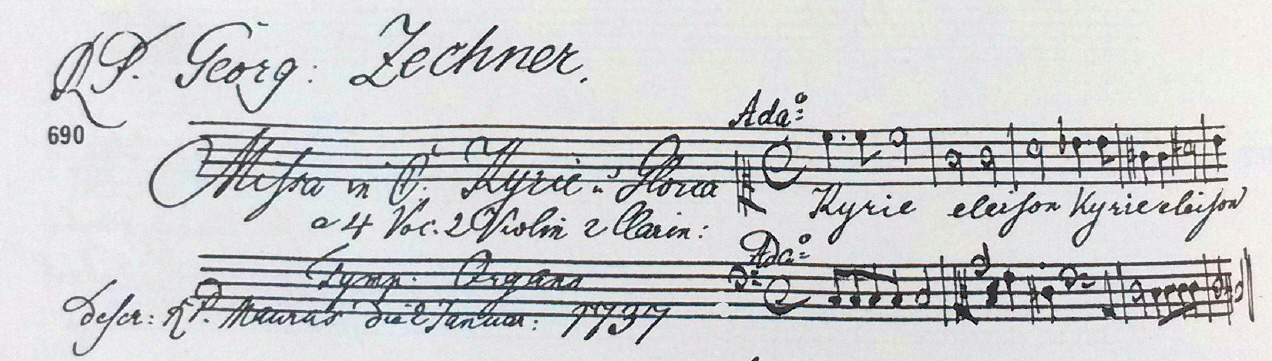 R.P. Georg: Zechner.
Ada:o
690
Missa in C. Kyrie et Gloria
Kyrie eleison Kyrie eleison
a 4 Voc. 2 Violin 2 Clarin:
Ada:o
Tymp. Organo
Descr: R.P. Maurus die 2 Januar: 1737